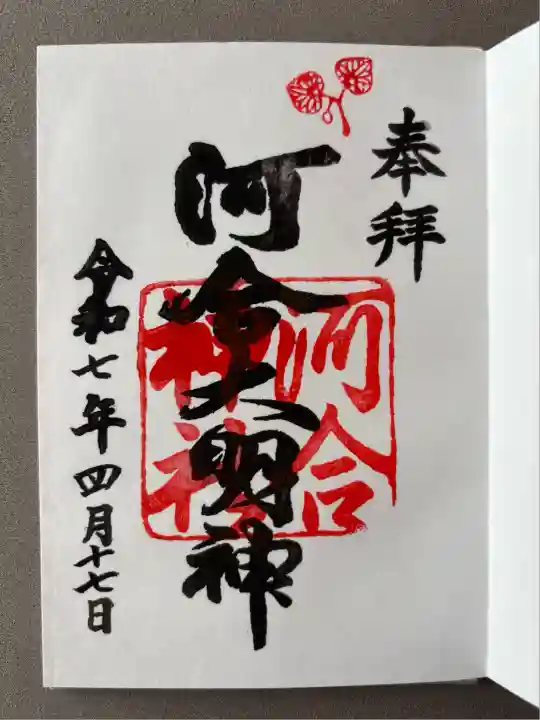 奉拝
河合大明神
河合
神社
令和七年四月十七日